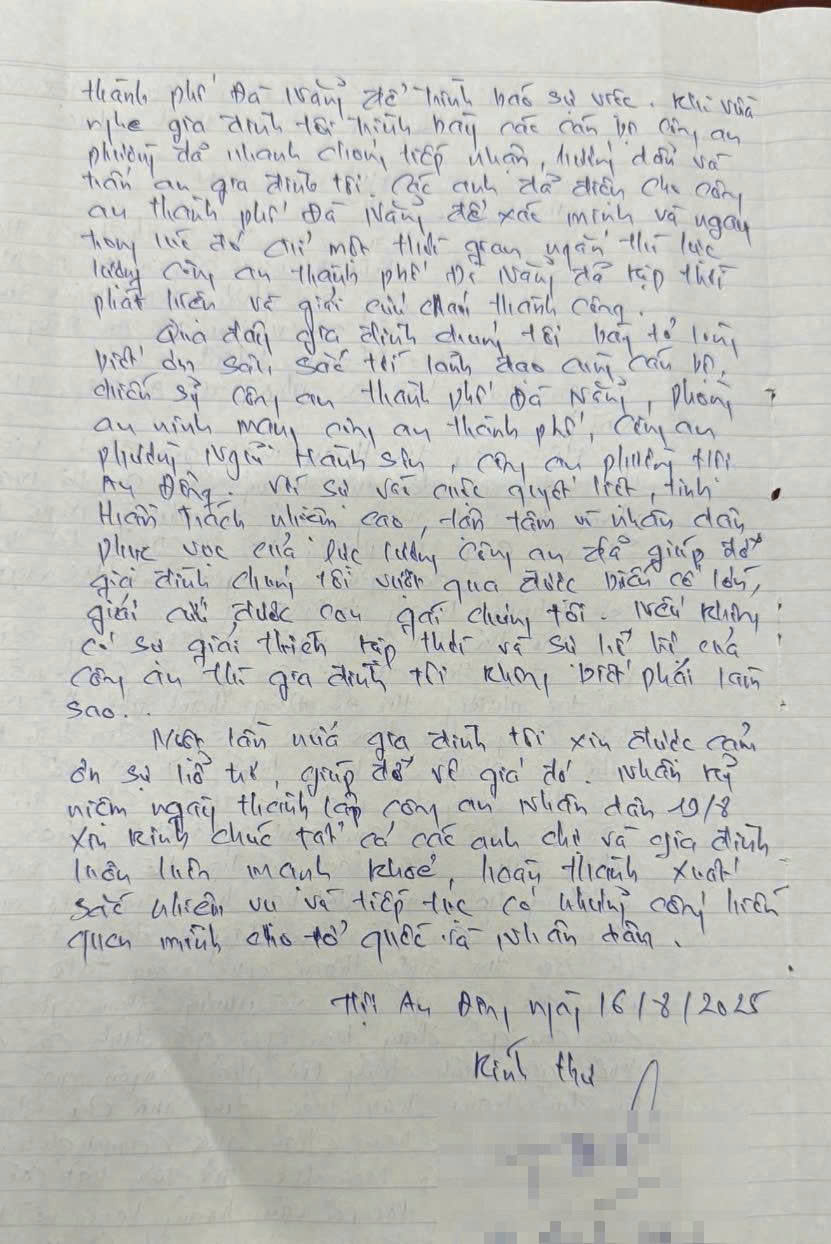 thành phố Đà Nẵng để trình báo sự việc. Khi vừa
nghe gia đình tôi trình bày các cán bộ công an
phường đã nhanh chóng tiếp nhận, hướng dẫn và
trấn an gia đình tôi. Các anh đã điện cho công
an thành phố Đà Nẵng để xác minh và ngay
trong lúc đó chỉ một thời gian ngắn thì lực
lượng công an thành phố Đà Nẵng đã kịp thời
phát hiện và giải cứu cháu thành công.
Qua đây gia đình chúng tôi bày tỏ lòng
biết ơn sâu sắc tới lãnh đạo cùng cán bộ,
chiến sỹ công an thành phố Đà Nẵng, phòng
an ninh mạng công an thành phố, công an
phường Ngũ Hành Sơn, công an phường Hội
An Đông. Với sự vào cuộc quyết liệt, tinh
thần trách nhiệm cao, tận tâm vì nhân dân
phục vụ của lực lượng công an đã giúp đỡ
gia đình chúng tôi vượt qua được biến cố lớn,
giải cứu được con gái chúng tôi. Nếu không
có sự giải thích kịp thời và sự hỗ trợ của
công an thì gia đình tôi không biết phải làm
sao..
Một lần nữa gia đình tôi xin được cảm
ơn sự hỗ trợ, giúp đỡ vô giá đó. Nhân kỷ
niệm ngày thành lập công an nhân dân 19/8
xin kính chúc tất cả các anh chị và gia đình
luôn luôn mạnh khoẻ, hoàn thành xuất
sắc nhiệm vụ và tiếp tục có những cống hiến
quên mình cho tổ quốc và nhân dân.
Hội An Đông ngày 16/8/2025
Kính thư